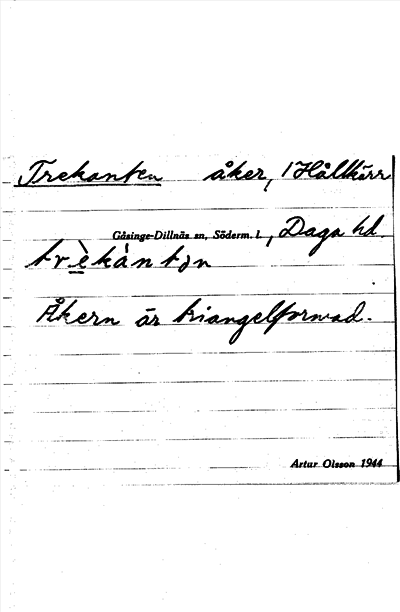 Trekanten åker, 1 Hållkärr
Gåsinge-Dillnäs sn, Söderm. l., Daga hd.
trèkàntən
Åkern är triangelformad.
Artur Olsson 1944